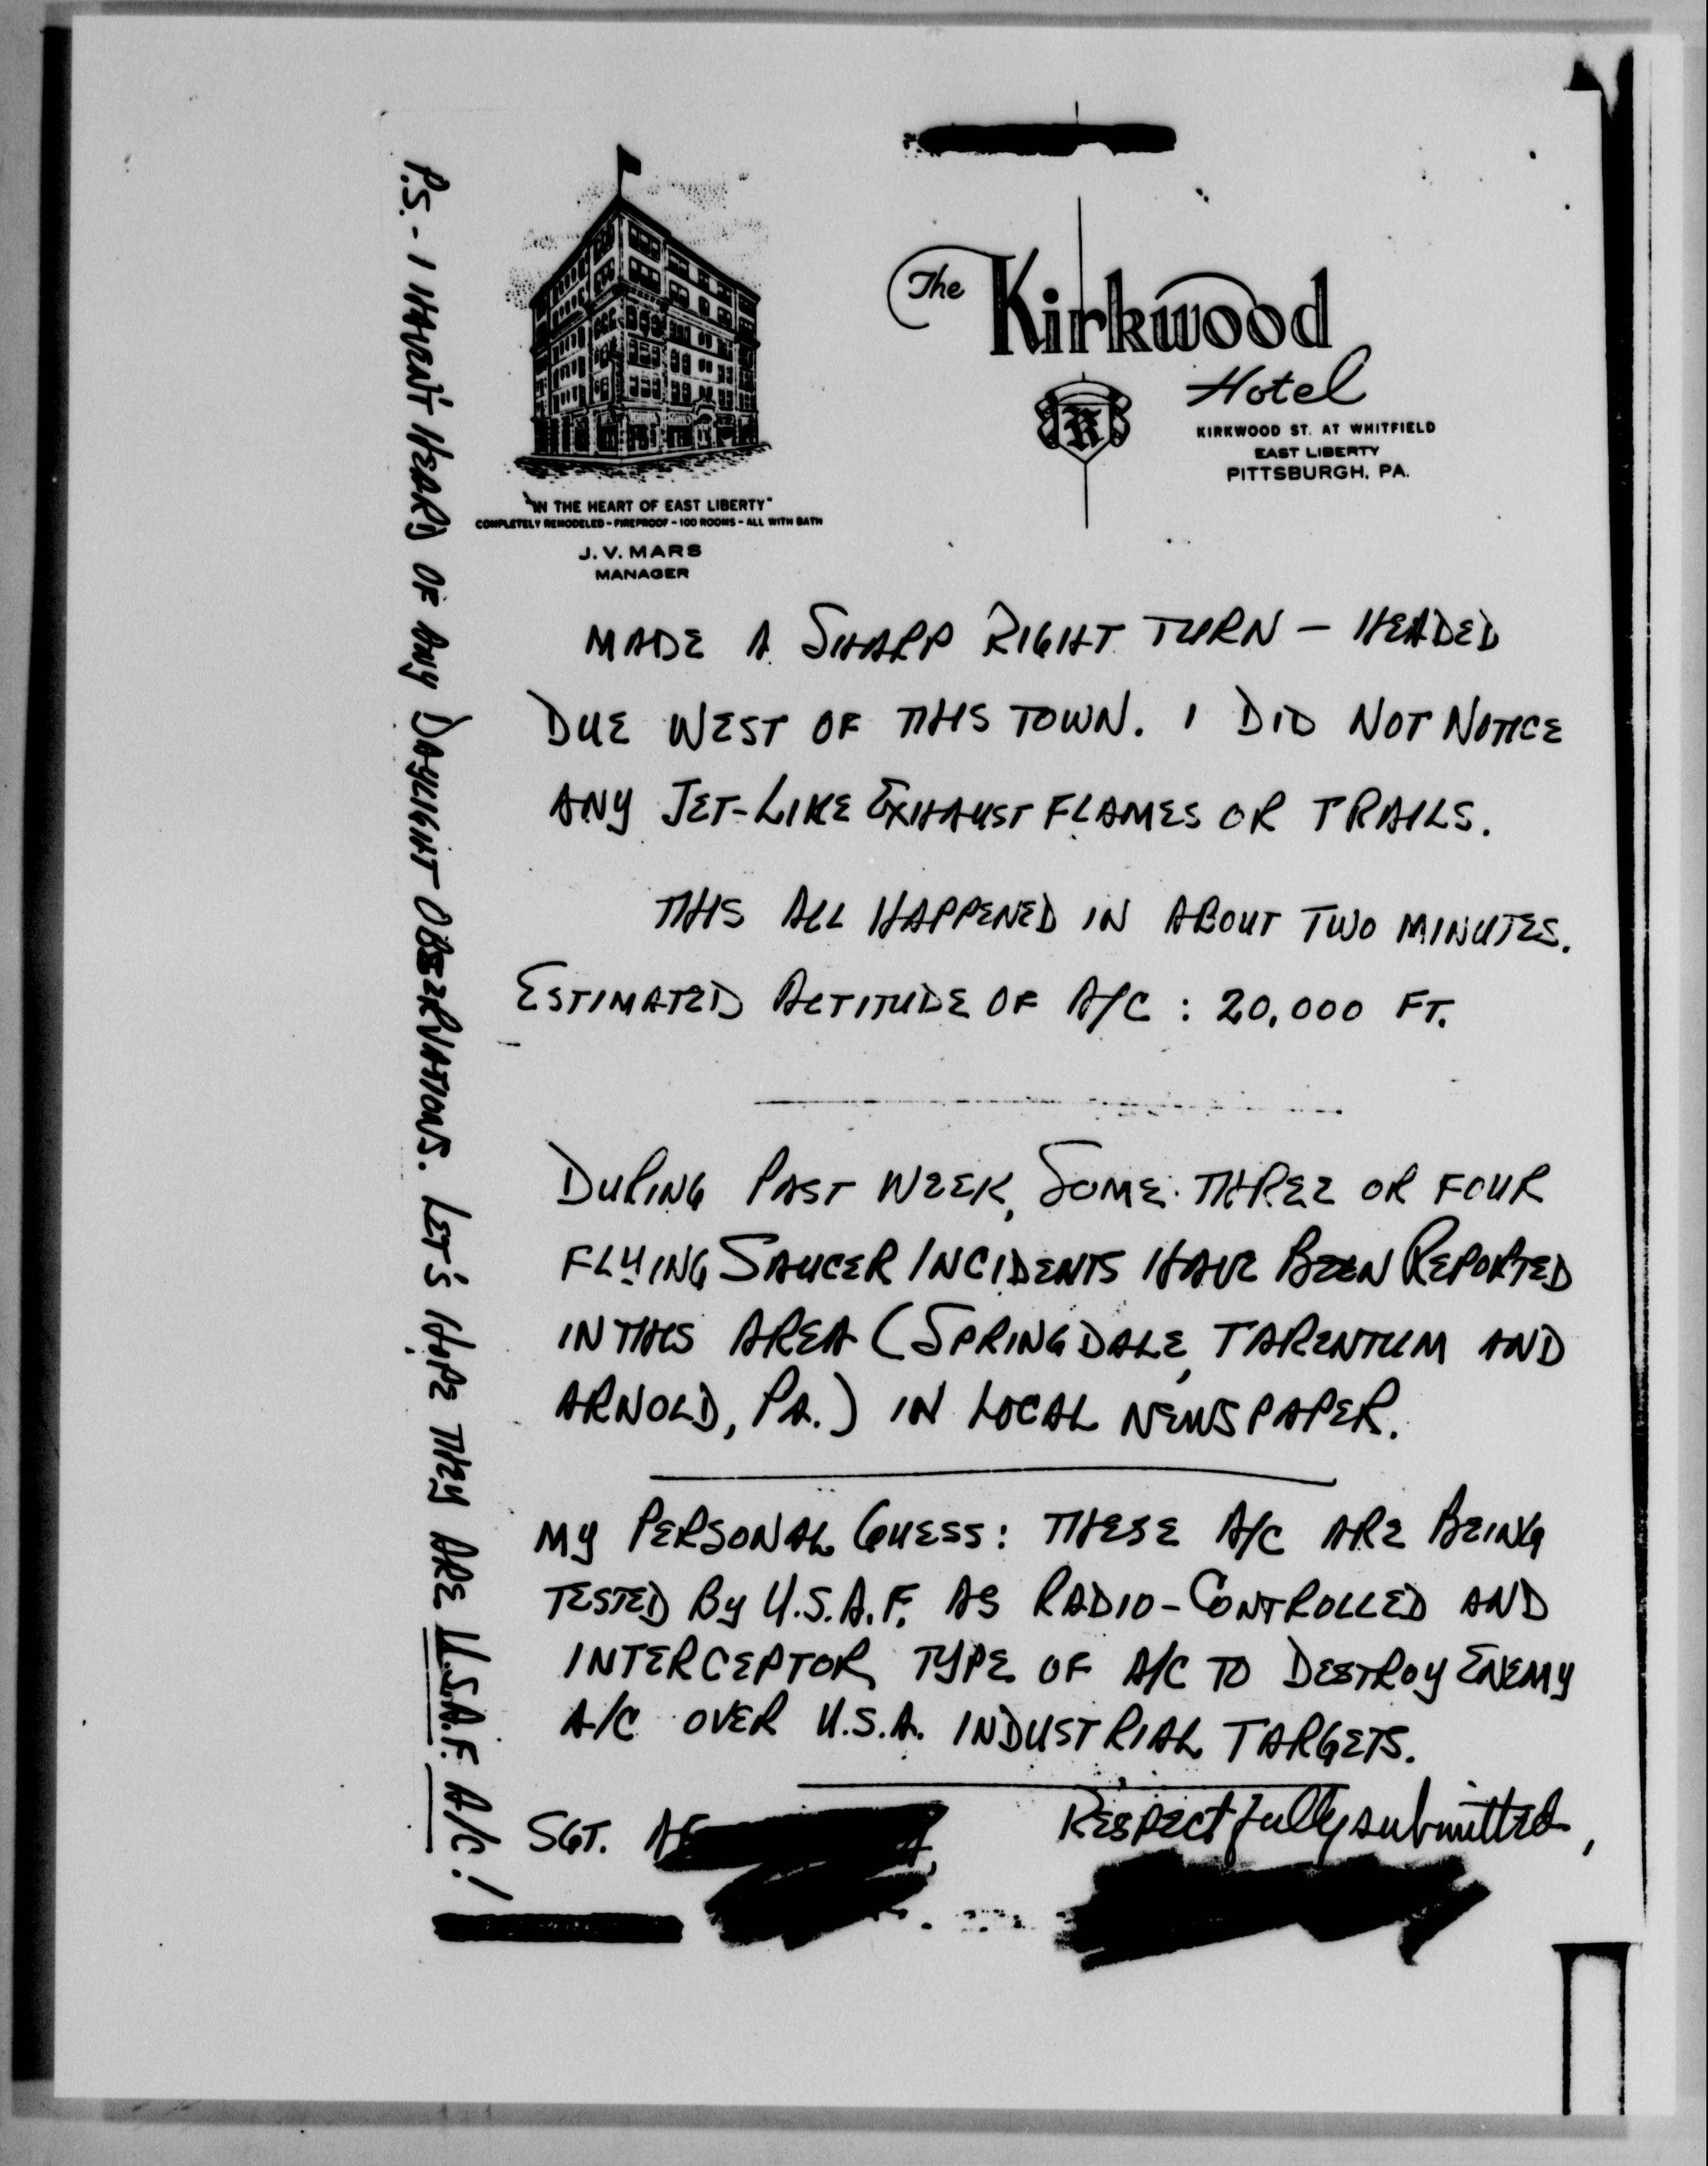 The Kirkwood
Hotel
KIRKWOOD ST. AT WHITFIELD
EAST LIBERTY
PITTSBURGH, PA.
"IN THE HEART OF EAST LIBERTY"
COMPLETELY REMODELED - FIREPROOF - 100 ROOMS - ALL WITH BATH
J. V. MARS
MANAGER
MADE A SHARP RIGHT TURN — HEADED
DUE WEST OF THIS TOWN. I DID NOT NOTICE
ANY JET-LIKE EXHAUST FLAMES OR TRAILS.
THIS ALL HAPPENED IN ABOUT TWO MINUTES.
ESTIMATED ALTITUDE OF A/C : 20,000 FT.
DURING PAST WEEK, SOME THREE OR FOUR
FLYING SAUCER INCIDENTS HAVE BEEN REPORTED
IN THIS AREA (SPRINGDALE, TARENTUM AND
ARNOLD, PA.) IN LOCAL NEWSPAPER.
MY PERSONAL GUESS: THESE A/C ARE BEING
TESTED BY U.S.A.F. AS RADIO-CONTROLLED AND
INTERCEPTOR TYPE OF A/C TO DESTROY ENEMY
A/C OVER U.S.A. INDUSTRIAL TARGETS.
Respectfully submitted,
SGT. AF
P.S. - I HAVEN'T HEARD OF ANY DAYLIGHT OBSERVATIONS. LET'S HOPE THEY ARE U.S.A.F. A/C!